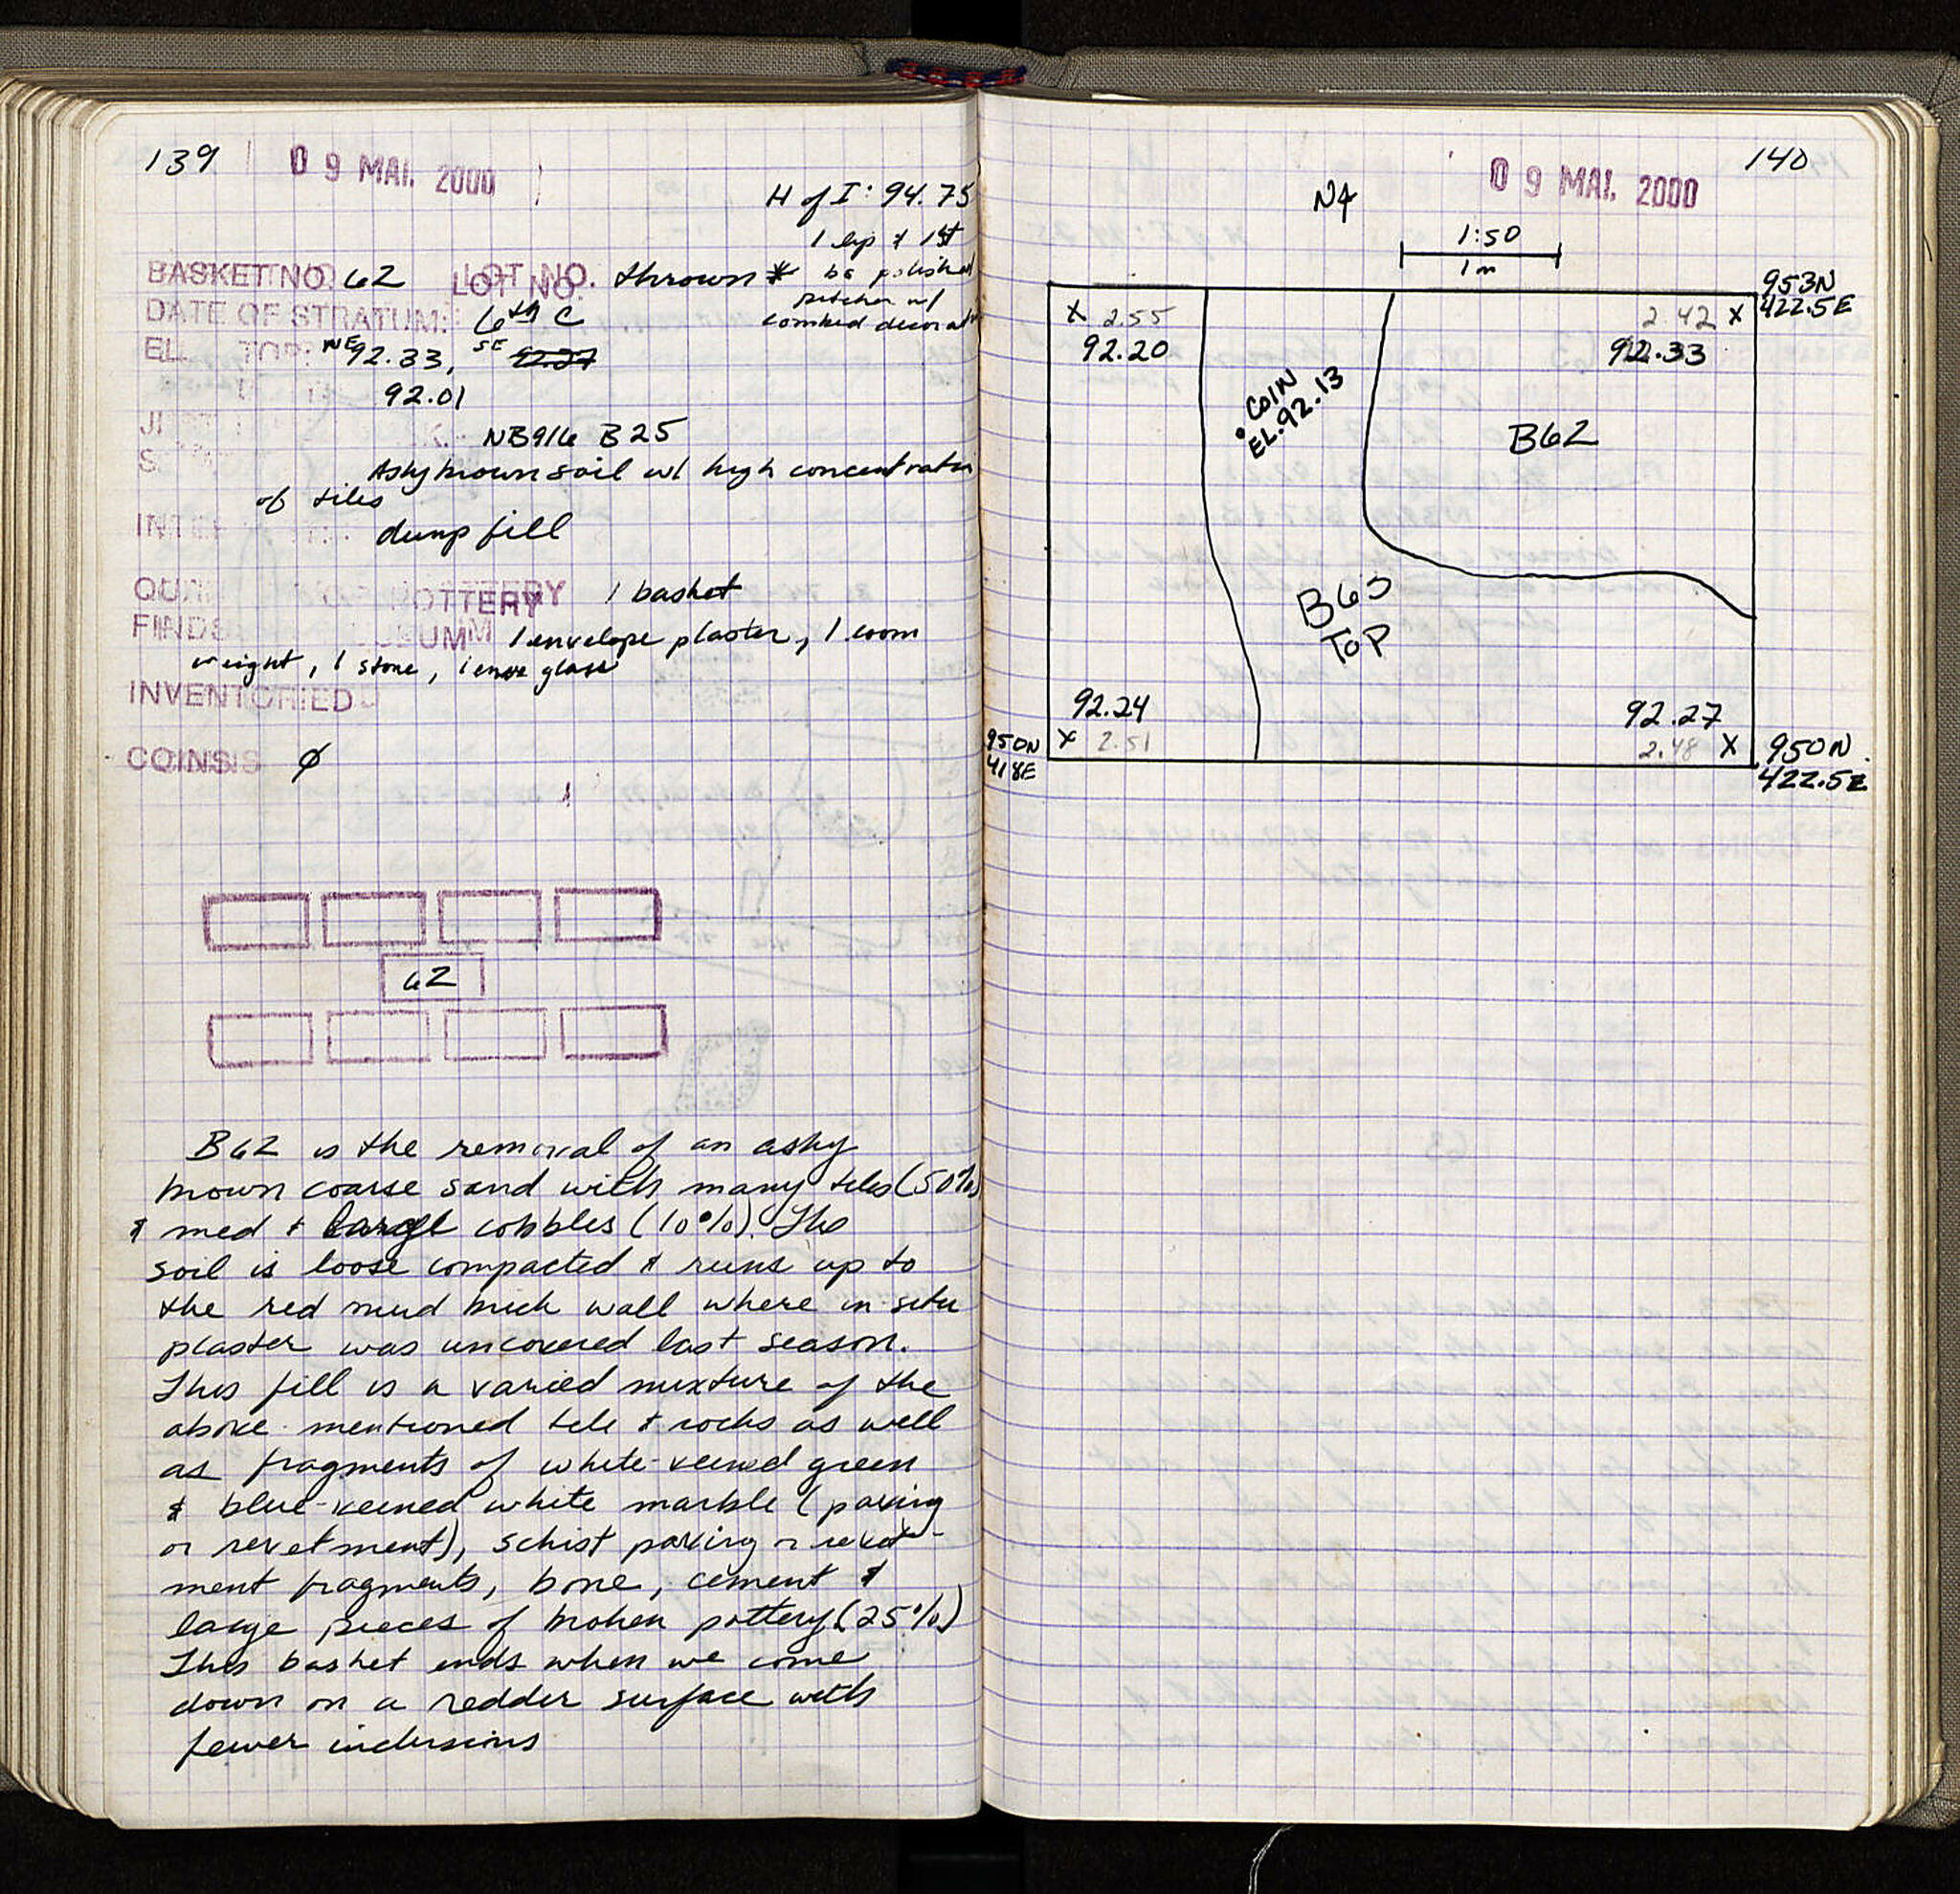 139
09 MAI. 2000
H of I: 94.75
BASKET NO. 62 LOT NO. thrown *
1 lip & 1st
be polished
pitcher w/
combed decorat
DATE OF STRATUM: 6th C
EL. TOP: NE 92.33, SE 92.27
92.01
NB916 B25
Ashy brown soil w/ high concentration
of tiles
dump fill
POTTERY 1 basket
FINDS 1 envelope plaster, 1 loom
weight, 1 stone, 1 enve glass
INVENTORIED
COINS ∅
62
B62 is the removal of an ashy
brown coarse sand with many tiles (50%)
& med & large cobbles (10%). The
soil is loose compacted & runs up to
the red mud brick wall where in situ
plaster was uncovered last season.
This fill is a varied mixture of the
above mentioned tile & rocks as well
as fragments of white-veined green
& blue-veined white marble (paving
or revetment), schist paving or revet-
ment fragments, bone, cement &
large pieces of broken pottery (25%)
This basket ends when we come
down on a redder surface with
fewer inclusions
140
09 MAI. 2000
N
1:50
1m
953N
422.5E
X 2.55
92.20
2.42 X
92.33
COIN
EL. 92.13
B62
B63
TOP
92.24
X 2.51
92.27
2.48 X
950N
418E
950N
422.5E